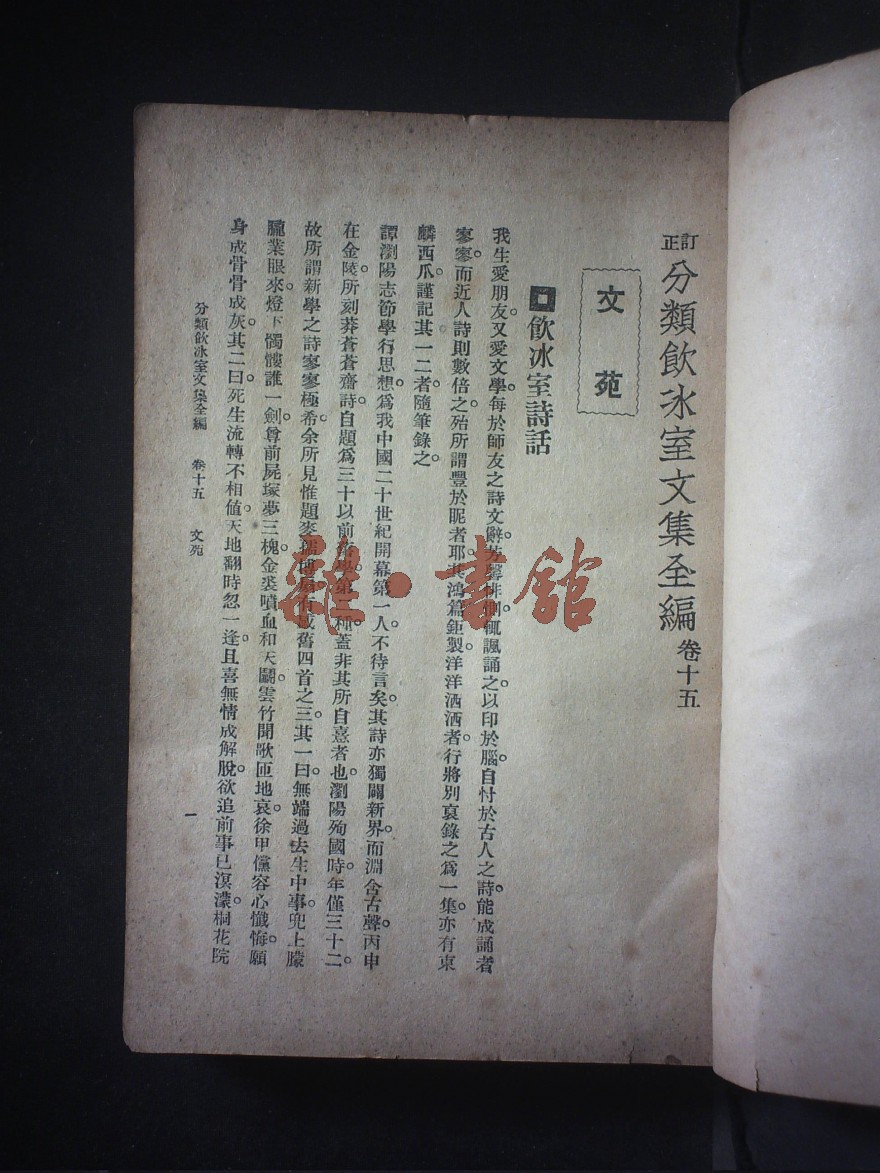 訂正分類飲冰室文集全編 卷十五
文苑
飲冰室詩話
我生愛朋友。又愛文學。每於師友之詩文辭。芳馨悱惻。輒諷誦之。以印於腦。自忖於古人之詩。能成誦者
寥寥。而近人詩則數倍之。殆所謂豐於昵者耶。其鴻篇鉅製。洋洋洒洒者。行將別裒錄之爲一集。亦有東
鱗西爪。謹記其一二者。隨筆錄之。
譚瀏陽志節學行思想。爲我中國二十世紀開幕第一人。不待言矣。其詩亦獨闢新界。而淵含古聲。丙申
在金陵所刻莽蒼蒼齋詩。自題爲三十以前舊學第二種。蓋非其所自憙者也。瀏陽殉國時。年僅三十二。
故所謂新學之詩。寥寥極希。余所見惟題麥孺博扇有感舊四首之三。其一曰。無端過去生中事。兜上朦
朧業眼來。燈下髑髏誰一劍。尊前屍塚夢三槐。金裘噴血和天鬭。雲竹聞歌匝地哀。徐甲儻容心懺悔。願
身成骨骨成灰。其二曰。死生流轉不相値。天地翻時忽一逢。且喜無情成解脫。欲追前事已溟濛。桐花院
分類飲冰室文集全編 卷十五 文苑
一
雜·書館